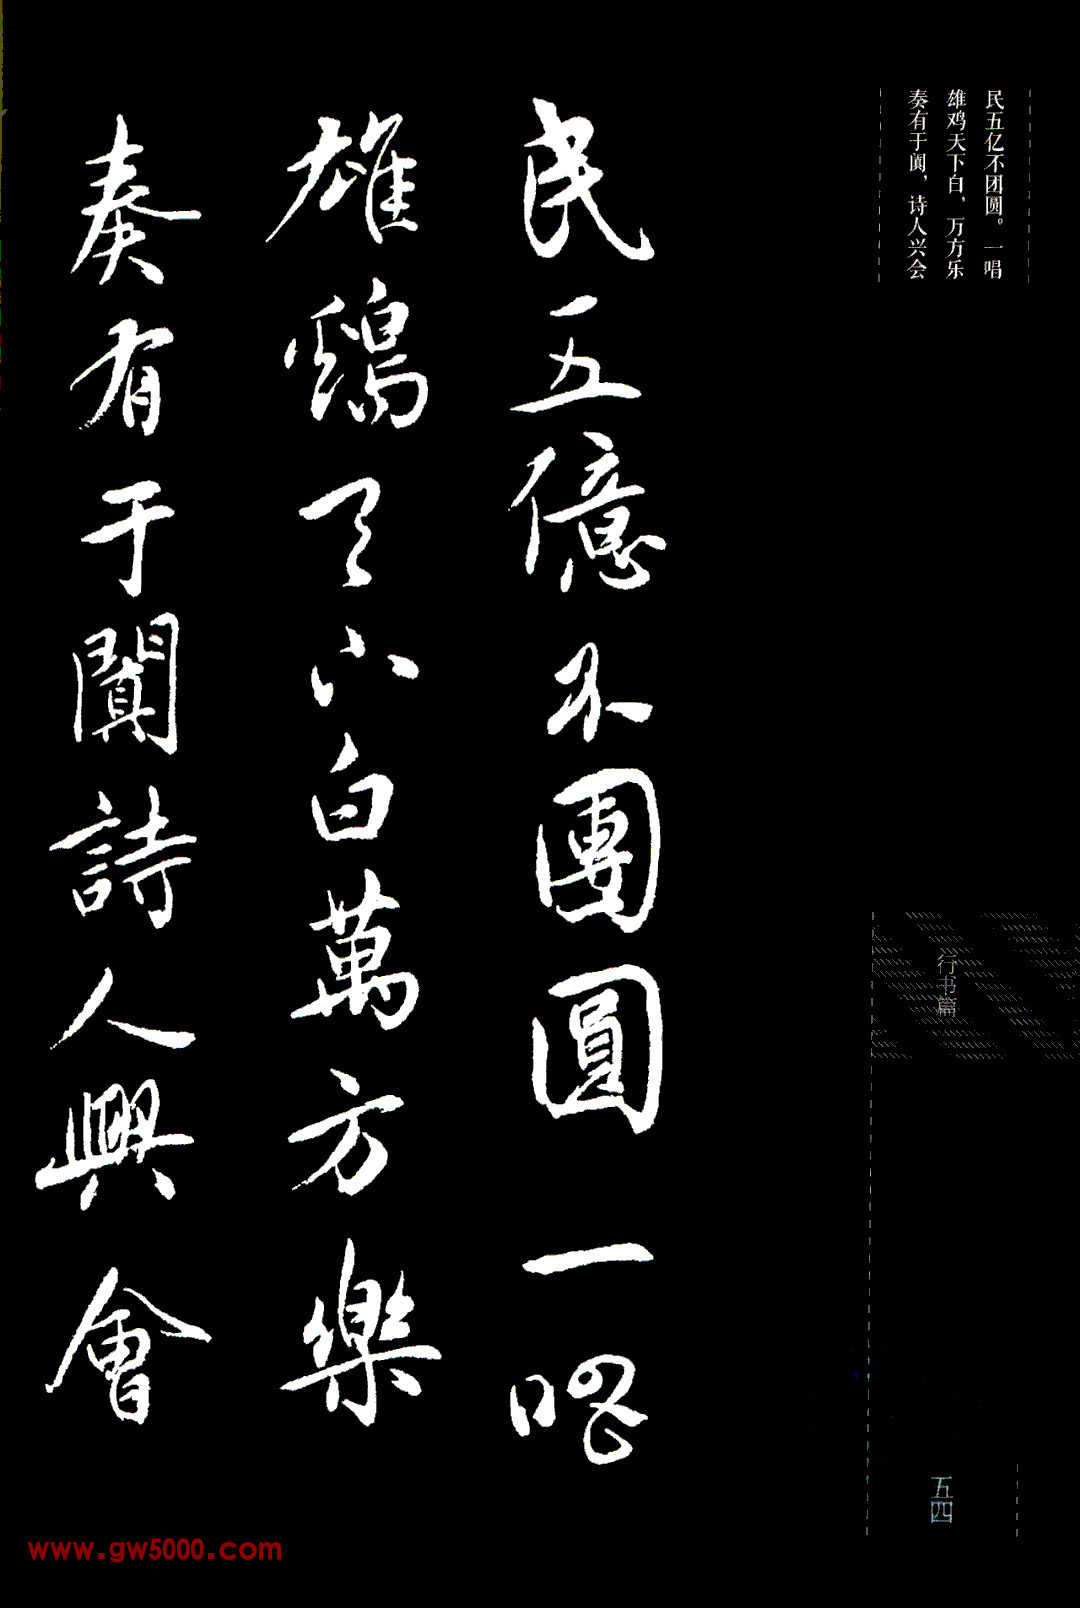 民五亿不团圆。一唱
雄鸡天下白，万方乐
奏有于阗，诗人兴会
民五億不團圓一唱
雄鷄天下白萬方樂
奏有于闐詩人興會
行书篇
五四
www.gw5000.com